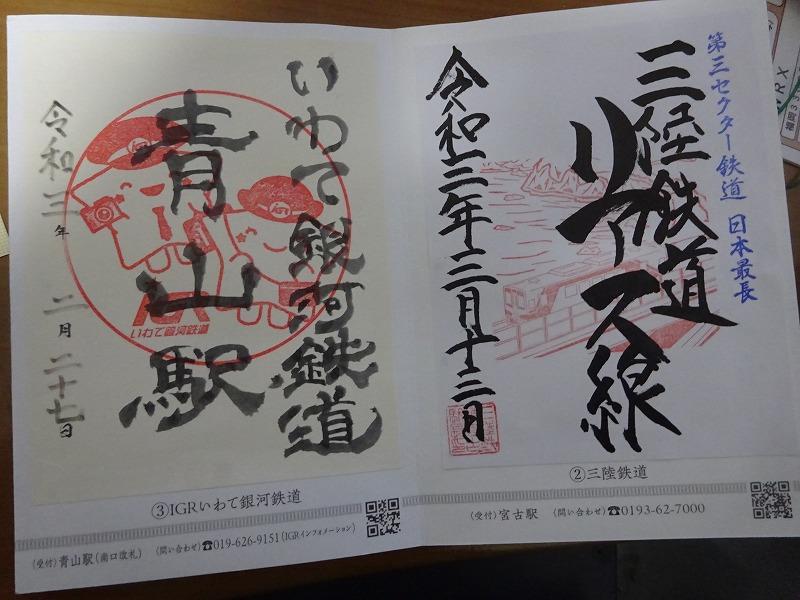 第三セクター鉄道 日本最長
三陸鉄道
リアス線
令和三年三月十三日
②三陸鉄道
(受付)宮古駅 (問い合わせ)☎0193-62-7000
いわて銀河鉄道
青山駅
令和三年 二月二十七日
IGR
いわて銀河鉄道
③IGRいわて銀河鉄道
(受付)青山駅(南口改札) (問い合わせ)☎019-626-9151(IGRインフォメーション)